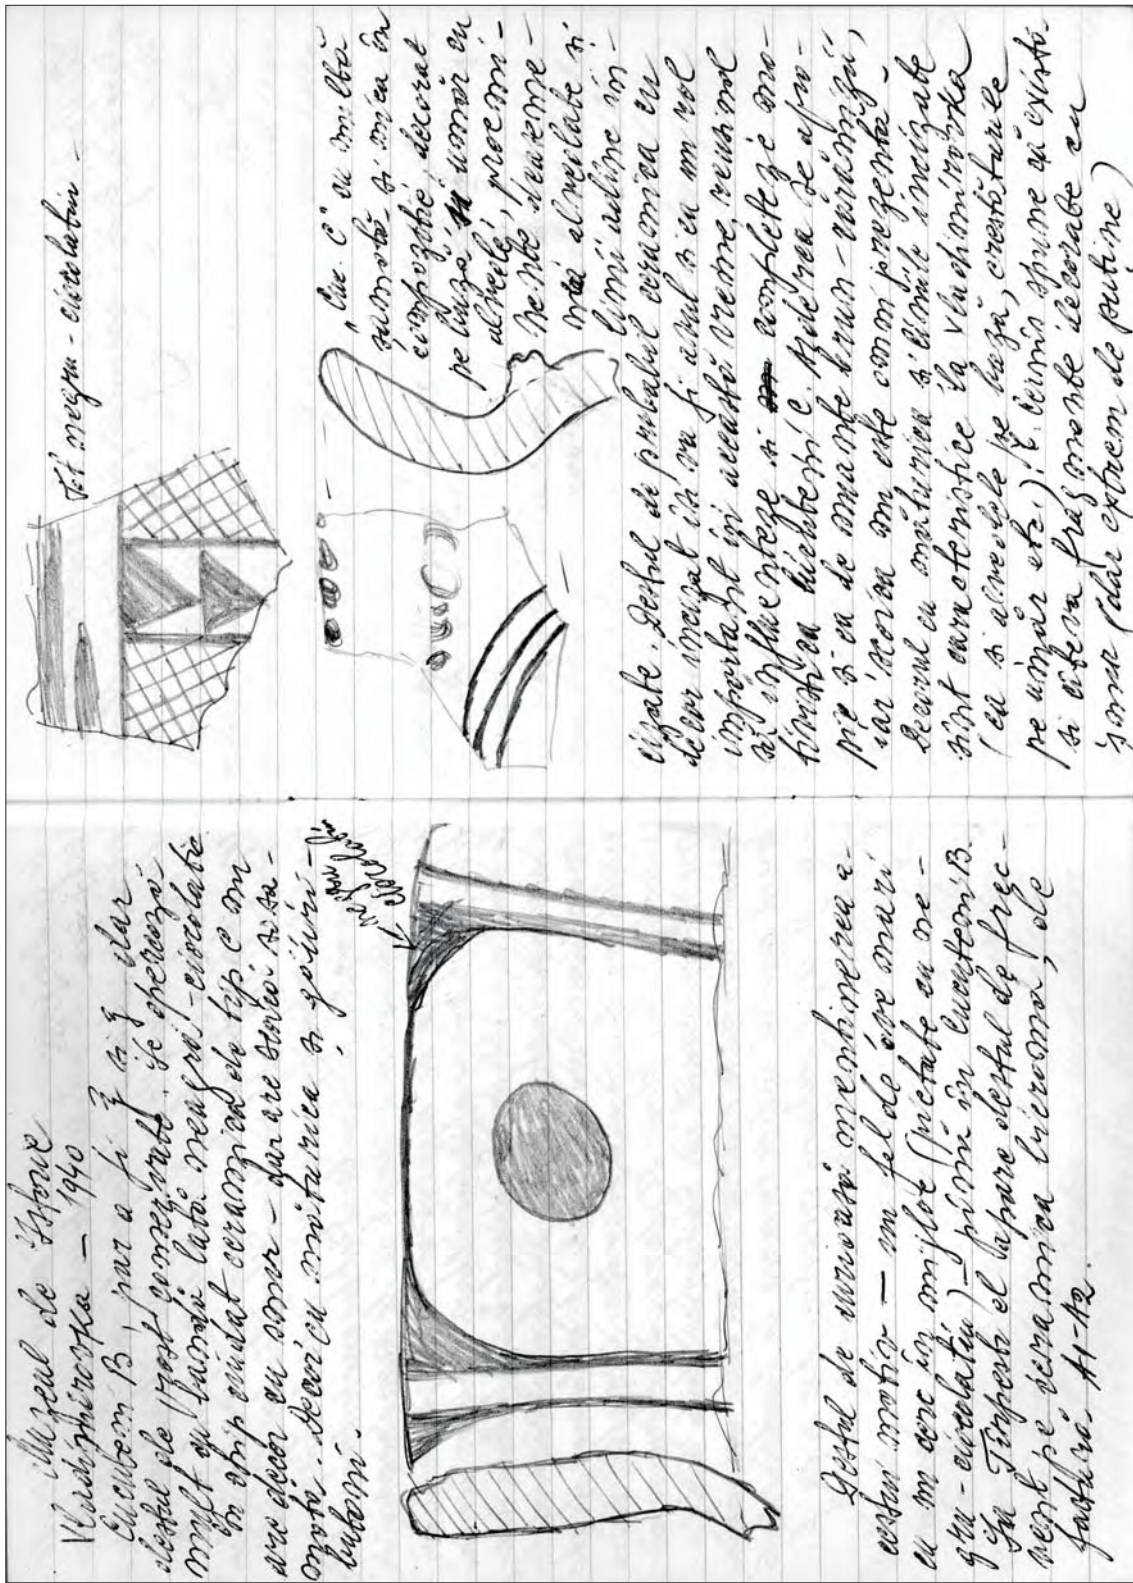 Muzeul de Istorie
Vladimirovka — 1940
Cucuteni B, par a fi și și dar
destul de prost conservate. Se operează
mult cu bandă lată neagră-ciocolatie
În chip ciudat ceramica de tip C nu
are decor cu șnur — dar are scoici și șa-
motă. Decor cu măturica și găuri-
butoni.
negru
ciocolatiu
Destul de curioasă menținerea a-
cestui motiv — un fel de ove mari
cu un cerc în mijloc (pictate cu ne-
gru-ciocolatiu) — până în Cucuteni B.
La Tîrpești el apare destul de frec-
vent pe ceramica bicromă, de
factură A1-A2.
Tot negru-ciocolatiu
„Cuc. C" cu multă
șamotă și mica în
compoziție, decorat
pe buză și umăr cu
alveole, proemi-
nențe asemenea
alveolate și
linii adînc in-
cizate. Destul de probabil ceramica cu
decor incizat își va fi avut și ea un rol
important în această vreme, reușind
să influențeze și completeze mo-
tivistica bichromică C. Asocierea de apo-
pie și ea de nuanțe brun-cărămizii,
iar scoica nu este omniprezentă.
Decorul cu măturica și liniile incizate
sînt caracteristice la Vladimirovka
(ca și alveolele pe buză, crestăturile
pe umăr etc.). Cerniș spune că există
și cîteva fragmente decorate cu
șnur (dar extrem de puține)